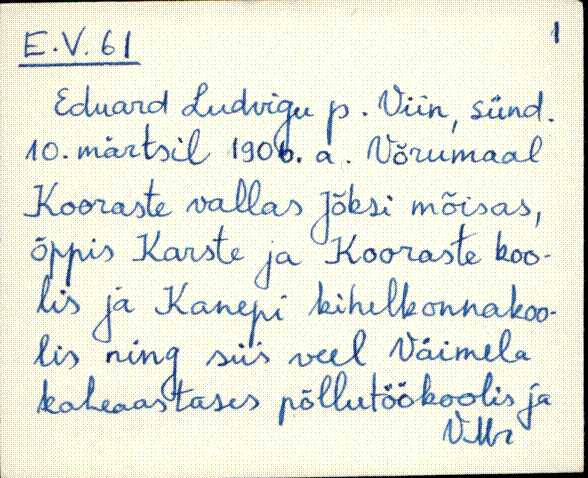 1
E.V. 61
Eduard Ludvigu p. Viin, sünd.
10. märtsil 1906. a. Võrumaal
Kooraste vallas Jõksi mõisas,
õppis Karste ja Kooraste koo-
lis ja Kanepi kihelkonnakoo-
lis ning siis veel Väimela
kaheaastases põllutöökoolis ja